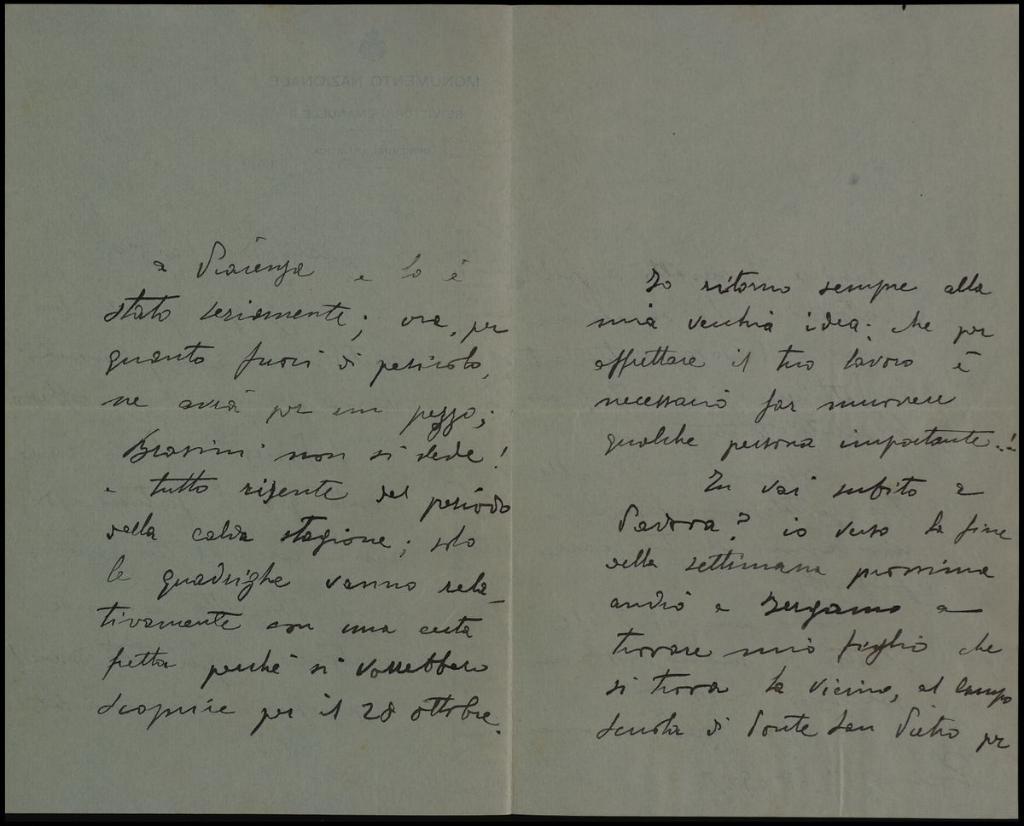 a Piacenza e lo è
stato seriamente; ora, per
quanto fuori di pericolo,
ne avrà per un pezzo;
Brasini non si vede!
e tutto risente del periodo
della calda stagione; solo
le quadrighe vanno rela-
tivamente con una certa
fretta perché si vorrebbero
scoprire per il 28 ottobre.
Io ritorno sempre alla
mia vecchia idea: che per
affrettare il tuo lavoro è
necessario far muovere
qualche persona importante..!
Tu vai subito a
Padova? io verso la fine
della settimana prossima
andrò a Bergamo a
trovare mio figlio che
si trova là vicino, al Campo
scuola di Ponte San Pietro per
MONUMENTO NAZIONALE